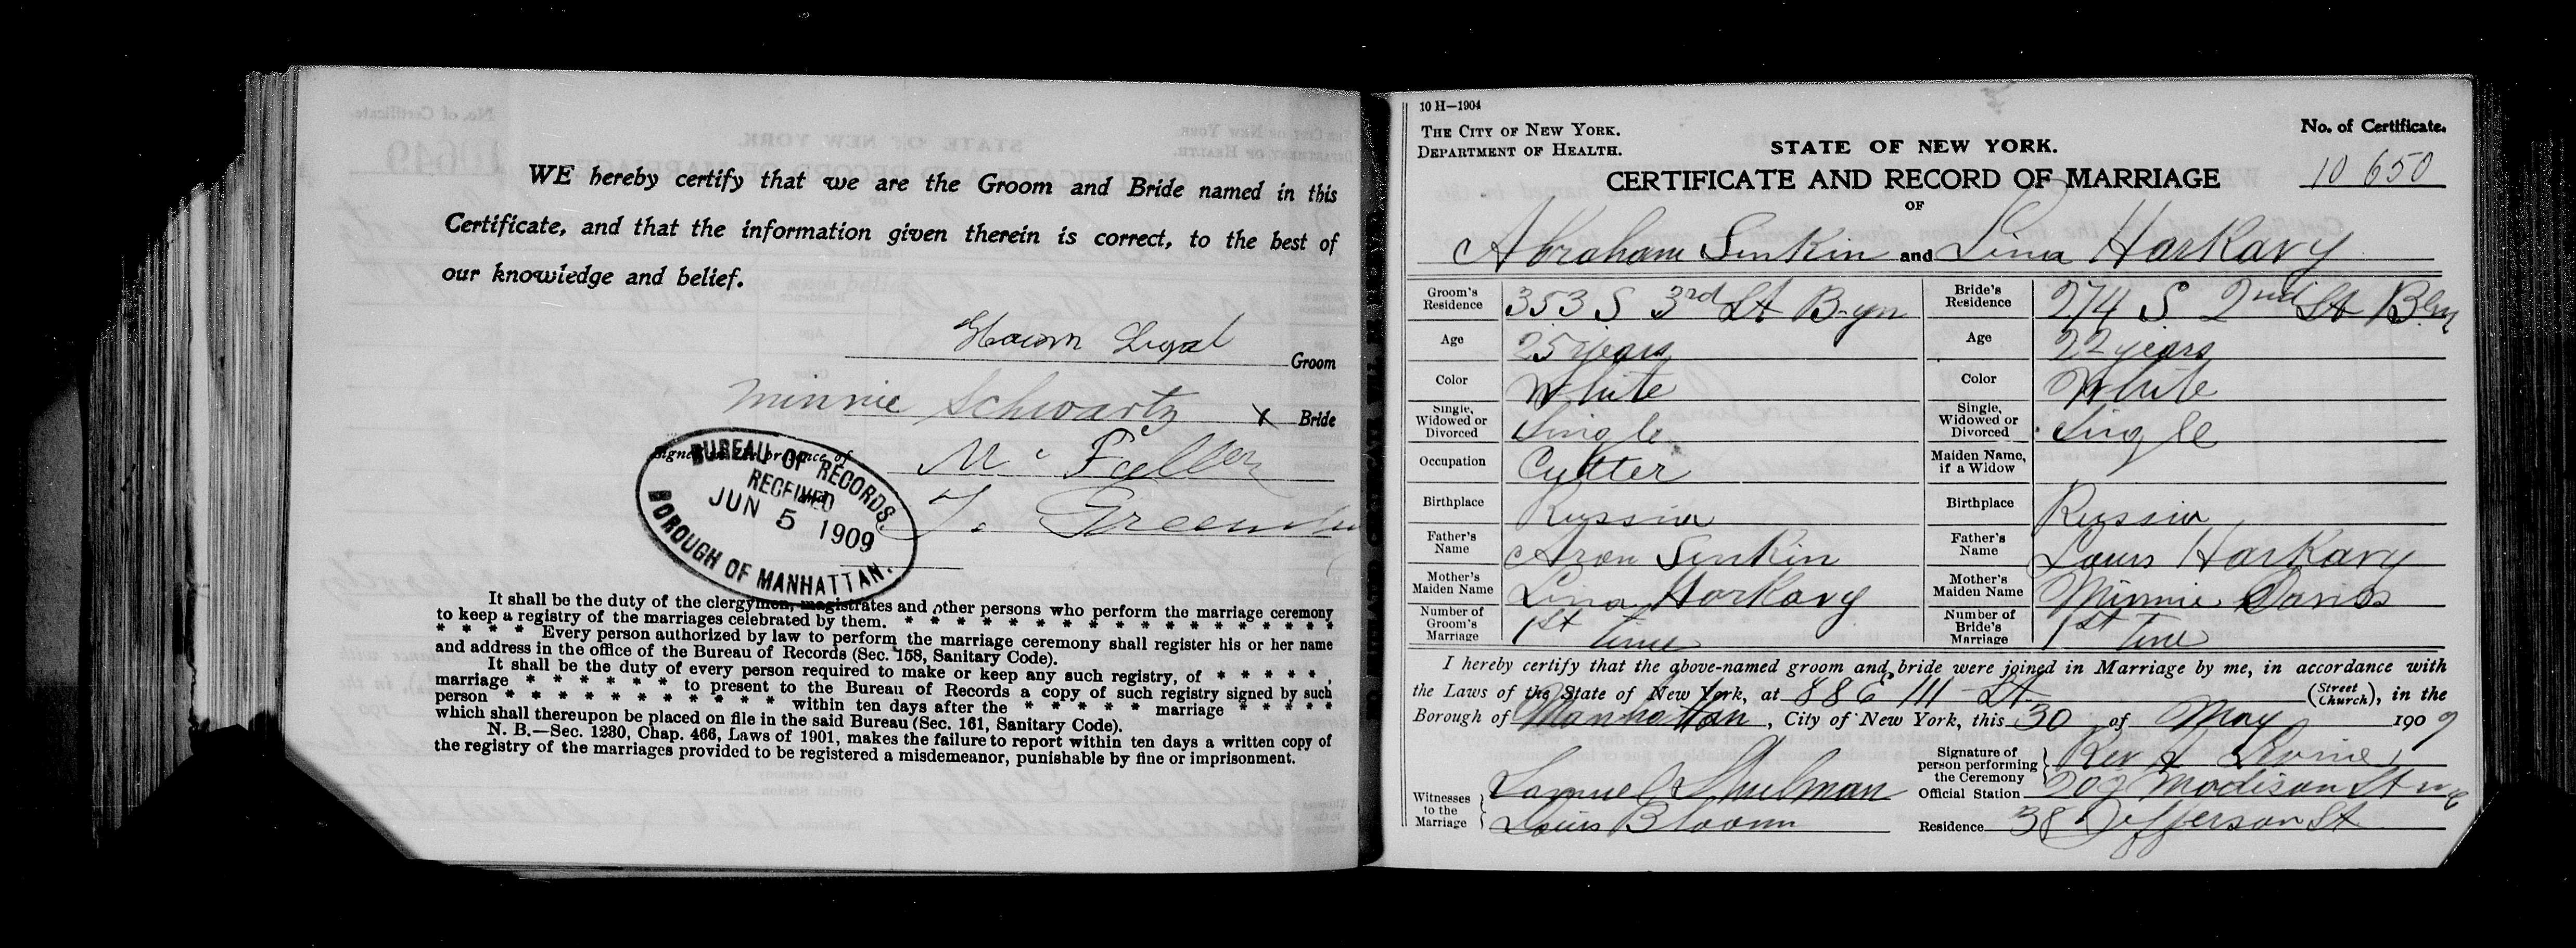 WE hereby certify that we are the Groom and Bride named in this
Certificate, and that the information given therein is correct, to the best of
our knowledge and belief.
Groom
Minnie Schwartz X Bride
Signed in the presence of
M. Feller
and
BUREAU OF RECORDS
RECEIVED
JUN 5 1909
BOROUGH OF MANHATTAN.
It shall be the duty of the clergymen, magistrates and other persons who perform the marriage ceremony
to keep a registry of the marriages celebrated by them. * * * * * * * * * * * * * * * * *
* * * * Every person authorized by law to perform the marriage ceremony shall register his or her name
and address in the office of the Bureau of Records (Sec. 158, Sanitary Code).
It shall be the duty of every person required to make or keep any such registry, of * * * * * ,
marriage * * * * * * to present to the Bureau of Records a copy of such registry signed by such
person * * * * * * * * * * * within ten days after the * * * * * marriage * * * * *
which shall thereupon be placed on file in the said Bureau (Sec. 161, Sanitary Code).
N. B.—Sec. 1280, Chap. 466, Laws of 1901, makes the failure to report within ten days a written copy of
the registry of the marriages provided to be registered a misdemeanor, punishable by fine or imprisonment.
10 H—1904
THE CITY OF NEW YORK.
DEPARTMENT OF HEALTH.
STATE OF NEW YORK.
No. of Certificate.
10650
CERTIFICATE AND RECORD OF MARRIAGE
OF
Abraham Sinkin and Lina Harkavy
Groom's Residence 353 S 3rd St B-yn Bride's Residence 274 S 2nd St Bkn
Age 25 years Age 22 years
Color White Color White
Single, Widowed or Divorced Single Single, Widowed or Divorced Single
Occupation Cutter Maiden Name, if a Widow
Birthplace Russia Birthplace Russia
Father's Name Aron Sinkin Father's Name Louis Harkavy
Mother's Maiden Name Lina Horkavy Mother's Maiden Name Minnie Davis
Number of Groom's Marriage 1st time Number of Bride's Marriage 1st time
I hereby certify that the above-named groom and bride were joined in Marriage by me, in accordance with
the Laws of the State of New York, at 88 E 111 St (Street Church), in the
Borough of Manhattan, City of New York, this 30 of May 1909
Signature of person performing the Ceremony Rev Levine
Witnesses to the Marriage Samuel Shulman
Louis Bloom
Official Station 207 Madison St
Residence 38 Jefferson St